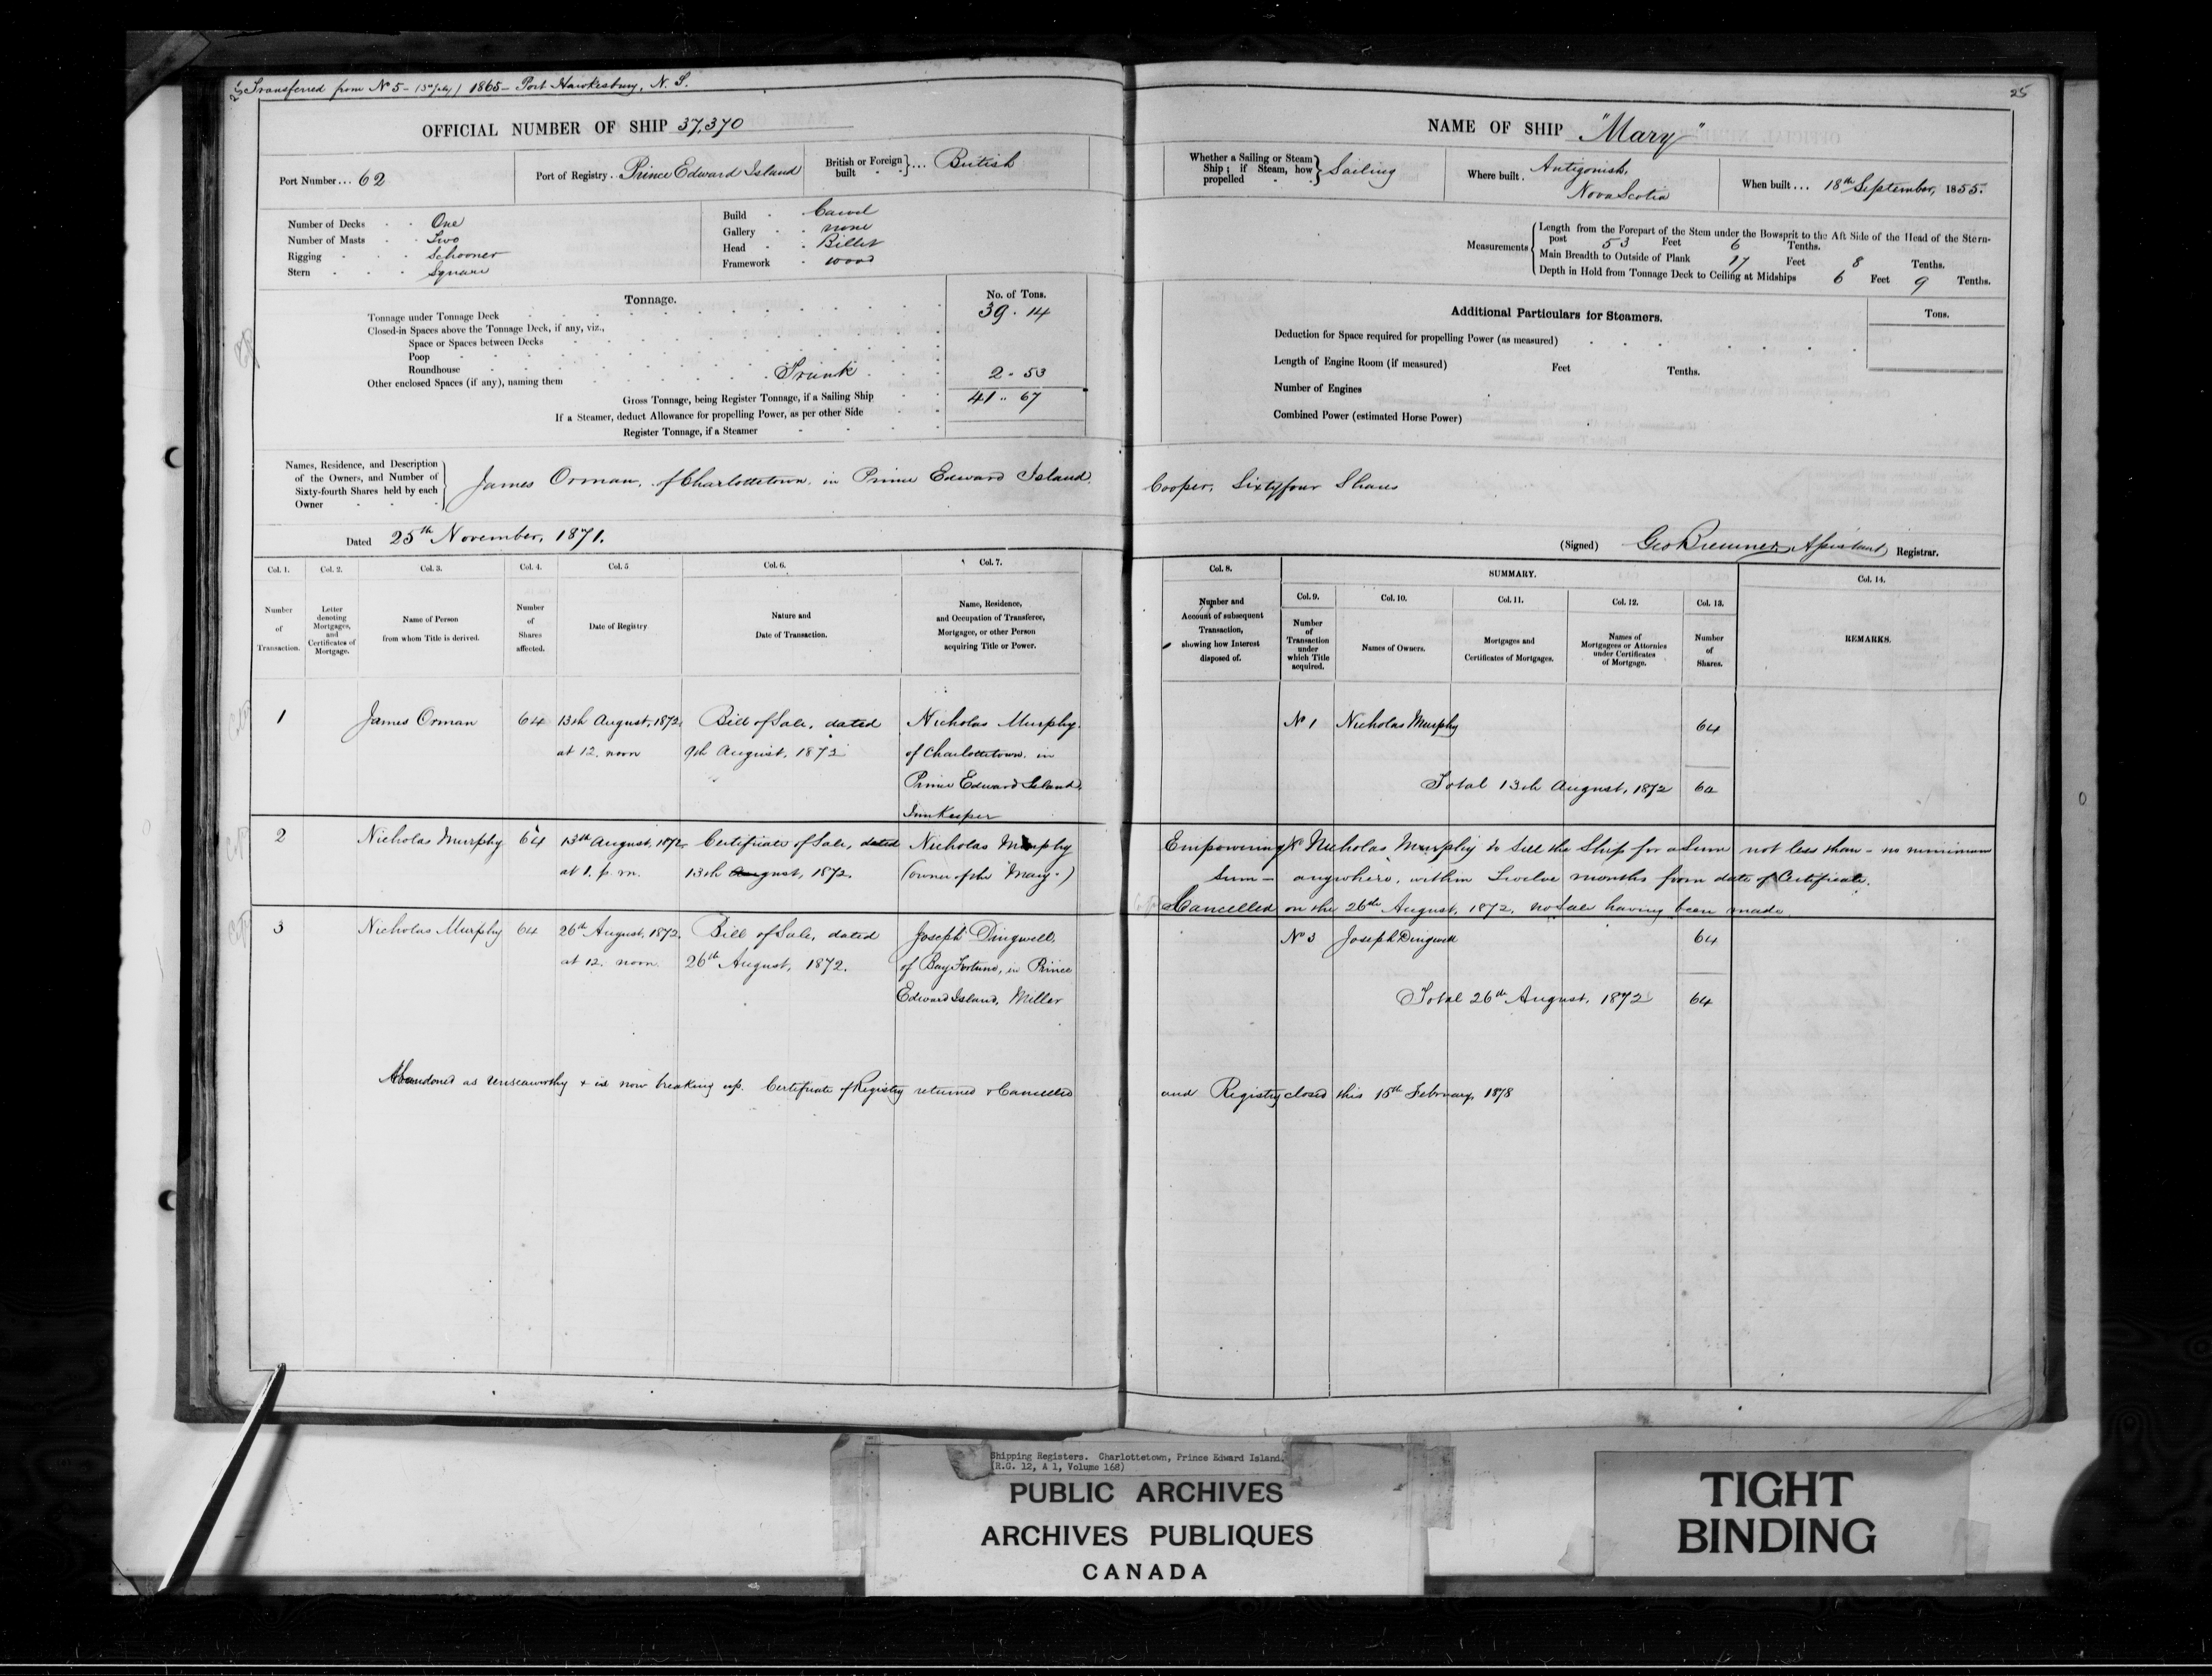 Transferred from No 5 - (5th July) 1865 - Port Hawkesbury, N. S.
25
OFFICIAL NUMBER OF SHIP 37,370
Port Number... 62
Port of Registry. Prince Edward Island
British or Foreign built } ... British
Number of Decks One
Number of Masts Two
Rigging Schooner
Stern Square
Build Carvel
Gallery none
Head Billet
Framework wood
Tonnage.
No. of Tons.
Tonnage under Tonnage Deck 39 . 14
Closed-in Spaces above the Tonnage Deck, if any, viz.,
Space or Spaces between Decks
Poop
Roundhouse
Other enclosed Spaces (if any), naming them Trunk 2 . 53
Gross Tonnage, being Register Tonnage, if a Sailing Ship 41 .. 67
If a Steamer, deduct Allowance for propelling Power, as per other Side
Register Tonnage, if a Steamer
NAME OF SHIP "Mary"
Whether a Sailing or Steam Ship; if Steam, how propelled } Sailing
Where built. Antigonish,
Nova Scotia
When built ... 18th September, 1855.
Measurements
Length from the Forepart of the Stem under the Bowsprit to the Aft Side of the Head of the Stern-
post 53 Feet 6 Tenths.
Main Breadth to Outside of Plank 17 Feet 8 Tenths.
Depth in Hold from Tonnage Deck to Ceiling at Midships 6 Feet 9 Tenths.
Additional Particulars for Steamers.
Tons.
Deduction for Space required for propelling Power (as measured)
Length of Engine Room (if measured) Feet Tenths.
Number of Engines
Combined Power (estimated Horse Power)
Names, Residence, and Description
of the Owners, and Number of
Sixty-fourth Shares held by each
Owner
James Orman, of Charlottetown in Prince Edward Island. Cooper, Sixtyfour Shares
Dated 25th November, 1871.
(Signed) Geo Bremner, Assistant Registrar.
Col. 1. Col. 2. Col. 3. Col. 4. Col. 5 Col. 6. Col. 7.
Number of Transaction.
Letter denoting Mortgages, and Certificates of Mortgage.
Name of Person from whom Title is derived.
Number of Shares affected.
Date of Registry
Nature and Date of Transaction.
Name, Residence, and Occupation of Transferee, Mortgagee, or other Person acquiring Title or Power.
Col. 8. SUMMARY. Col. 14.
Col. 9. Col. 10. Col. 11. Col. 12. Col. 13.
Number and Account of subsequent Transaction, showing how Interest disposed of.
Number of Transaction under which Title acquired.
Names of Owners.
Mortgages and Certificates of Mortgages.
Names of Mortgagees or Attornies under Certificates of Mortgage.
Number of Shares.
REMARKS.
1 James Orman 64 13th August, 1872, Bill of Sale, dated Nicholas Murphy No 1 Nicholas Murphy 64
at 12. noon 9th August, 1872 of Charlottetown in
Prince Edward Island, Total 13th August, 1872 64
Innkeeper
2 Nicholas Murphy 64 13th August, 1872 Certificate of Sale, dated Nicholas Murphy Empowering Nicholas Murphy to sell the Ship for a Sum not less than - no minimum
at 1. p. m. 13th August, 1872. (owner of the "Mary") Sum - anywhere, within Twelve months from date of Certificate.
Cancelled on the 26th August, 1872, no Sale having been made.
3 Nicholas Murphy 64 26th August, 1872. Bill of Sale, dated Joseph Dingwell, No 3 Joseph Dingwell 64
at 12. noon. 26th August, 1872. of Bay Fortune, in Prince
Edward Island, Miller Total 26th August, 1872 64
Abandoned as unseaworthy & is now breaking up. Certificate of Registry returned & Cancelled and Registry closed this 15th February, 1878
Shipping Registers. Charlottetown, Prince Edward Island.
(R.G. 12, A 1, Volume 168)
PUBLIC ARCHIVES
ARCHIVES PUBLIQUES
CANADA
TIGHT
BINDING